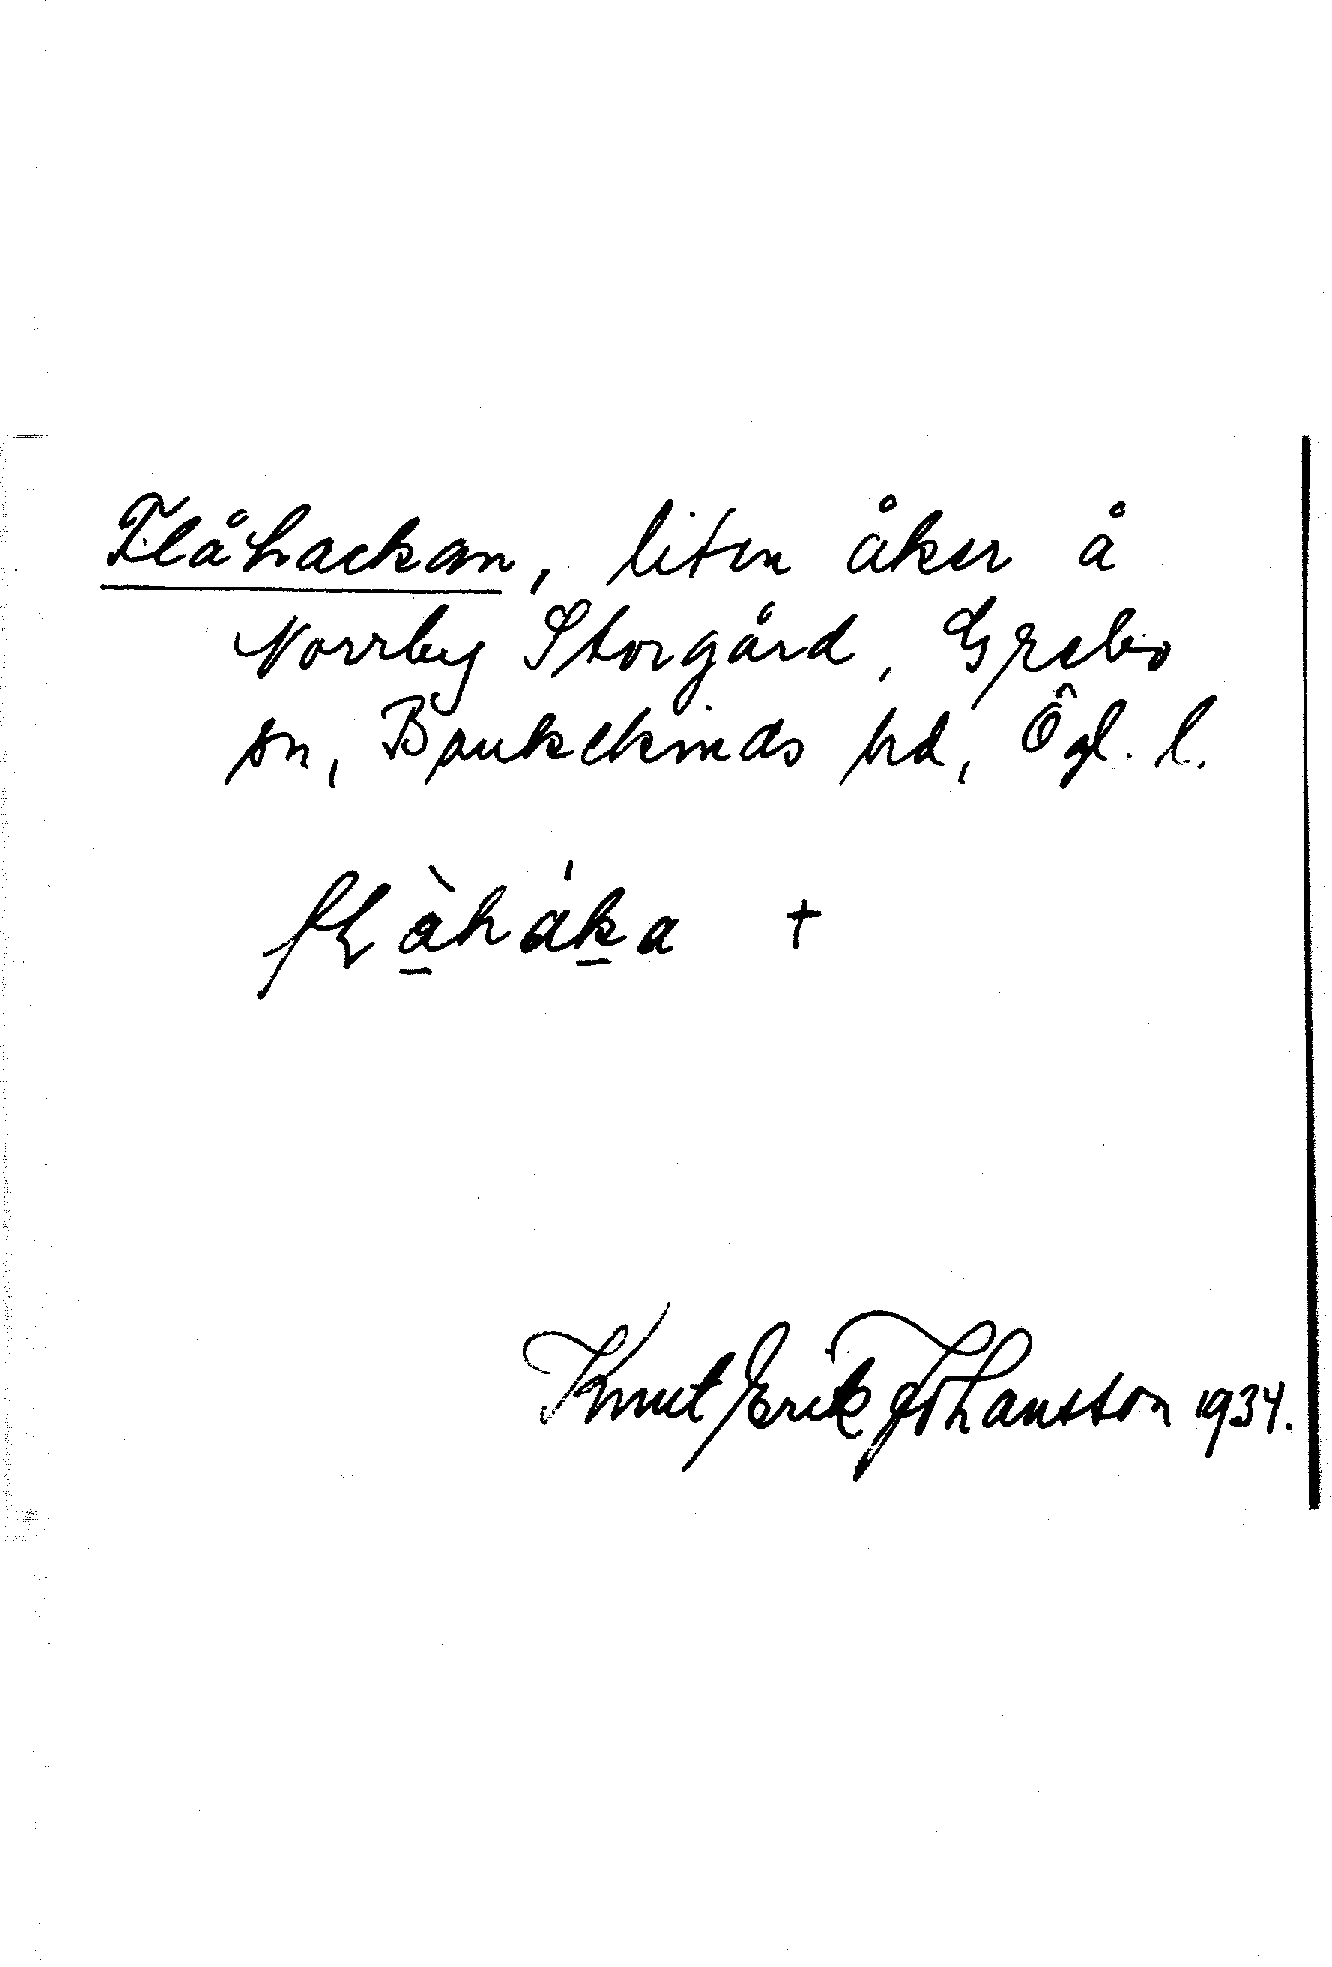 Flåhackan, liten åker å
Norrby Storgård, Grebo
sn, Bankekinds hd, Ögl. l.
flåhàka +
Knut Erik Johansson 1934.